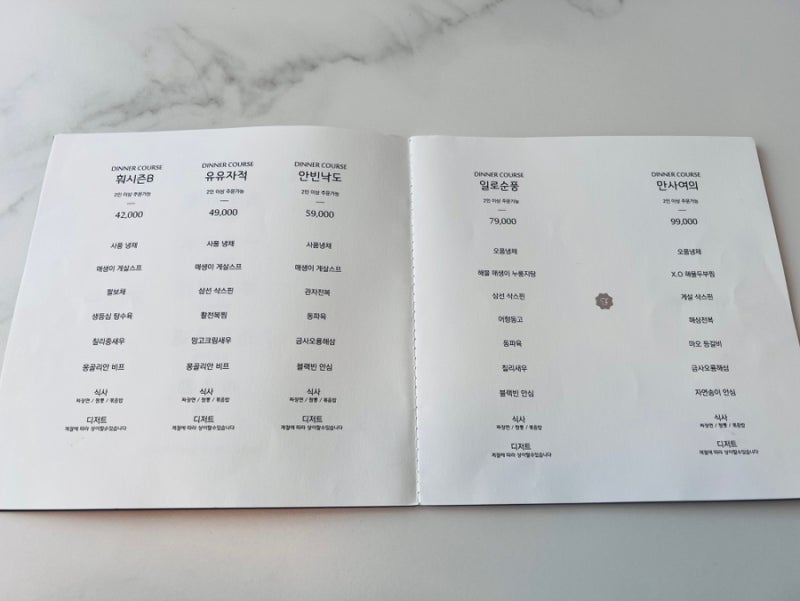 DINNER COURSE
훠시즌B
2인 이상 주문가능
42,000
사품 냉채
매생이 게살스프
팔보채
생등심 탕수육
칠리중새우
몽골리안 비프
식사
짜장면 / 짬뽕 / 볶음밥
디저트
계절에 따라 상이할수있습니다
DINNER COURSE
유유자적
2인 이상 주문가능
49,000
사품 냉채
매생이 게살스프
삼선 삭스핀
활전복찜
망고크림새우
몽골리안 비프
식사
짜장면 / 짬뽕 / 볶음밥
디저트
계절에 따라 상이할수있습니다
DINNER COURSE
안빈낙도
2인 이상 주문가능
59,000
사품냉채
매생이 게살스프
관자전복
동파육
금사오룡해삼
블랙빈 안심
식사
짜장면 / 짬뽕 / 볶음밥
디저트
계절에 따라 상이할수있습니다
DINNER COURSE
일로순풍
2인 이상 주문가능
79,000
오품냉채
해물 매생이 누룽지탕
삼선 삭스핀
어향동고
동파육
칠리새우
블랙빈 안심
식사
짜장면 / 짬뽕 / 볶음밥
디저트
계절에 따라 상이할수있습니다
DINNER COURSE
만사여의
2인 이상 주문가능
99,000
오품냉채
X.O 해물두부찜
게살 삭스핀
해삼전복
마오 등갈비
금사오룡해삼
자연송이 안심
식사
짜장면 / 짬뽕 / 볶음밥
디저트
계절에 따라 상이할수있습니다